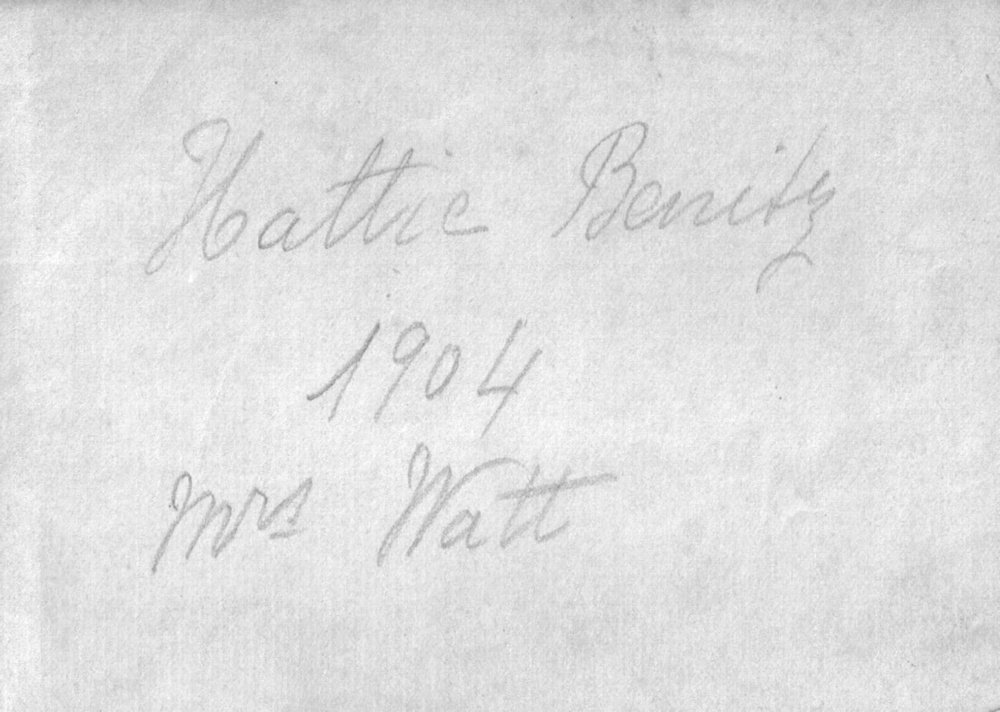 Hattie Benitz
1904
Mrs Watt